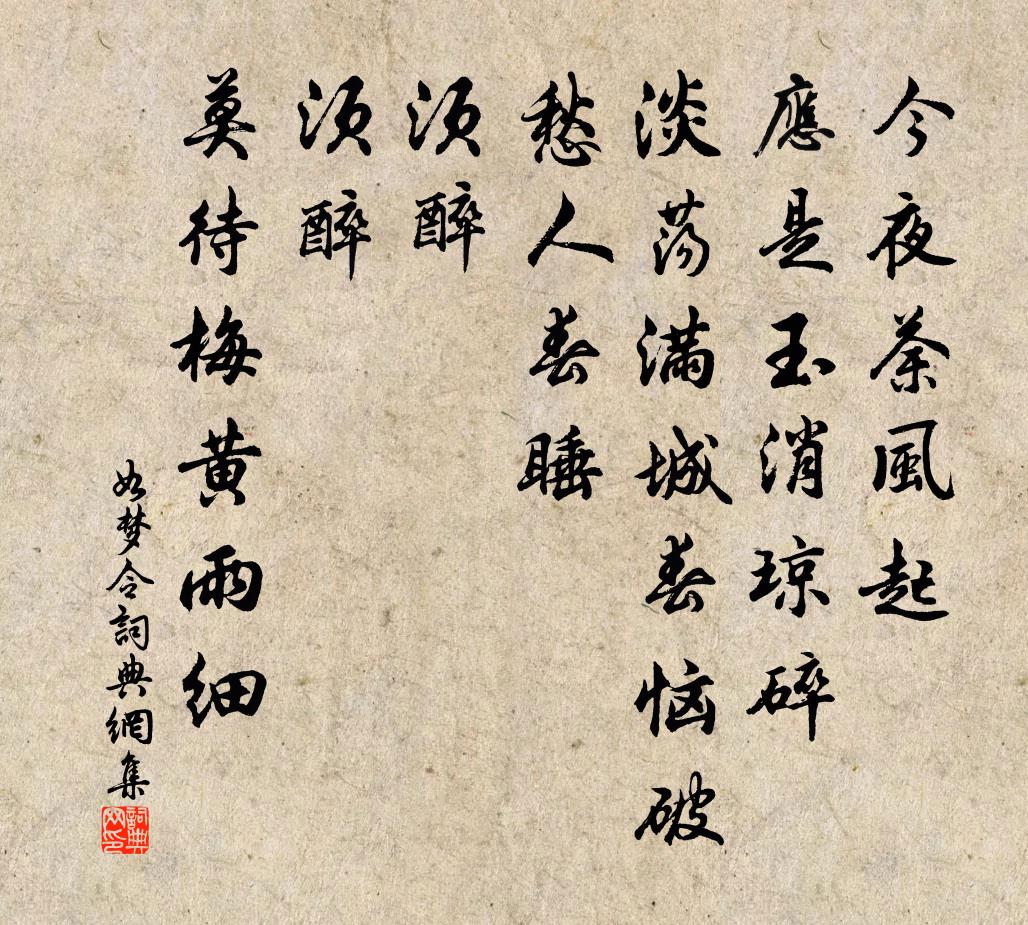 今夜荼風起
應是玉消瓊碎
淡荡滿城春恼破
愁人春睡
須醉
須醉
莫待梅黃雨細
如梦令詞典網集
詞典网印